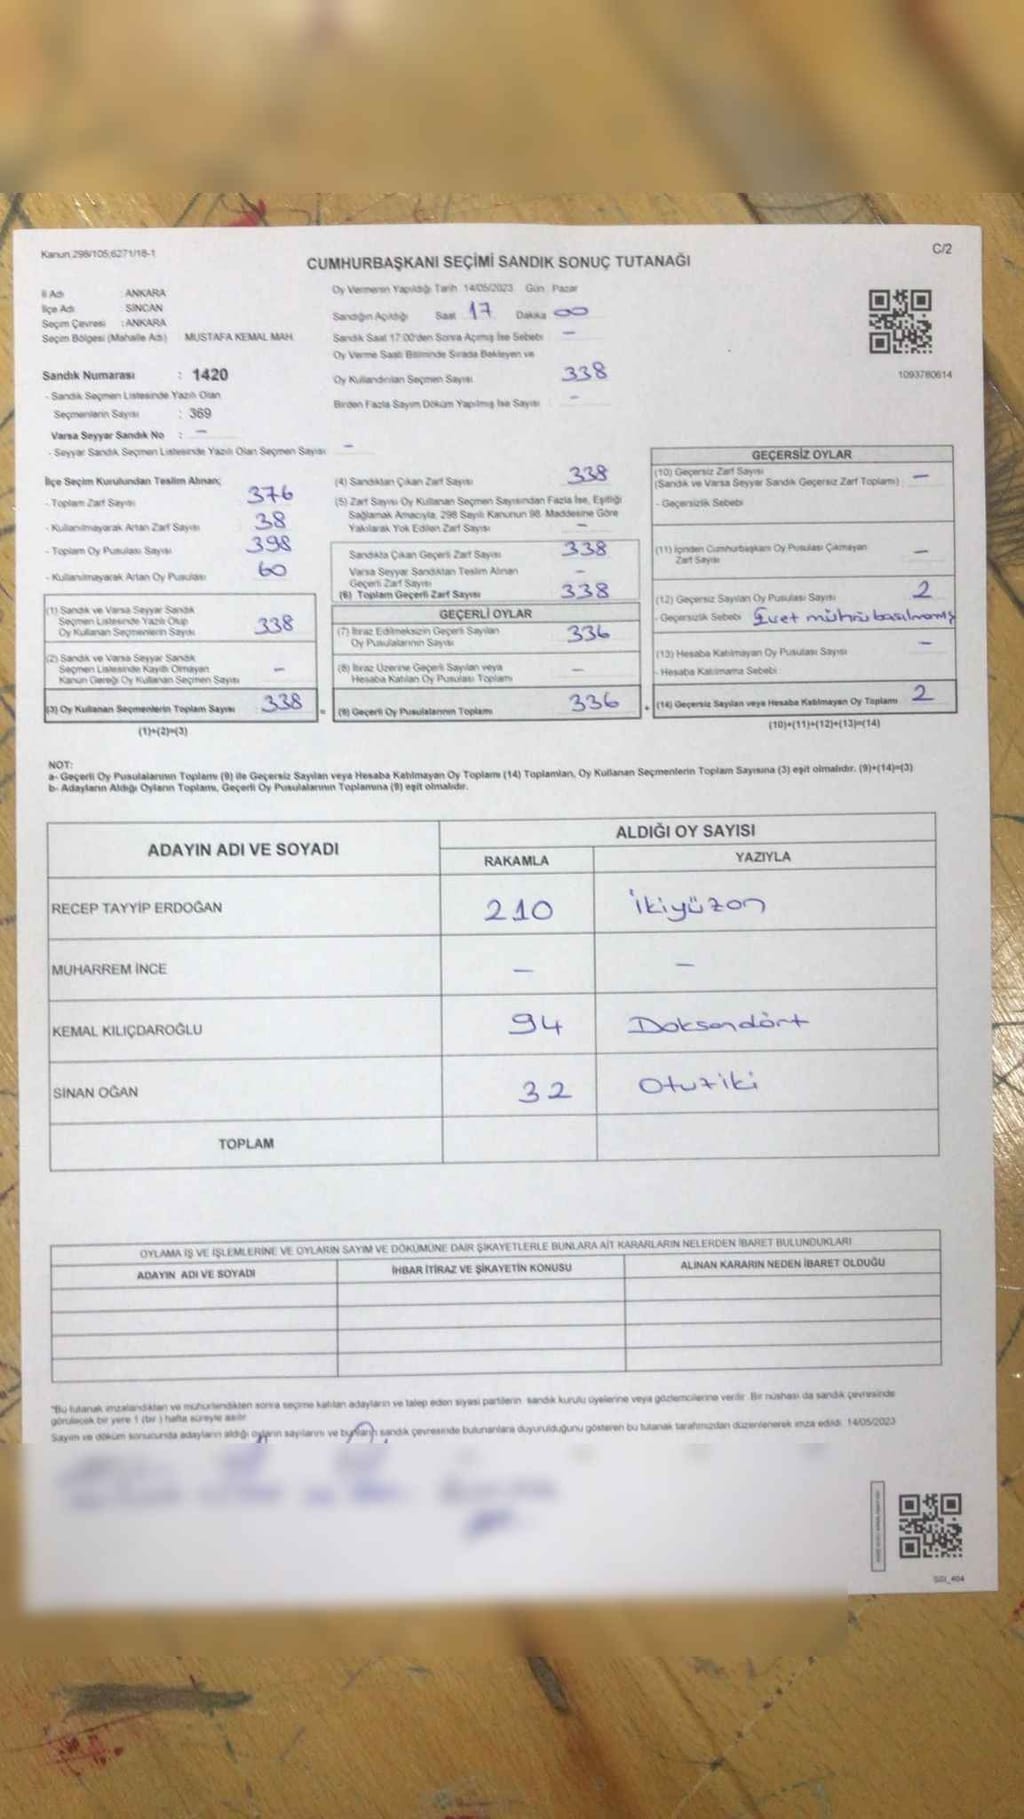 Kanun 298/105;6271/18-1
C/2
CUMHURBAŞKANI SEÇİMİ SANDIK SONUÇ TUTANAĞI
İl Adı : ANKARA
İlçe Adı : SİNCAN
Seçim Çevresi : ANKARA
Seçim Bölgesi (Mahalle Adı) MUSTAFA KEMAL MAH.
Sandık Numarası : 1420
- Sandık Seçmen Listesinde Yazılı Olan
Seçmenlerin Sayısı : 369
Varsa Seyyar Sandık No : -
- Seyyar Sandık Seçmen Listesinde Yazılı Olan Seçmen Sayısı -
Oy Vermenin Yapıldığı Tarih 14/05/2023 Gün Pazar
Sandığın Açıldığı Saat 17 Dakika 00
Sandık Saat 17:00'den Sonra Açılmış İse Sebebi -
Oy Verme Saati Bitiminde Sırada Bekleyen ve
Oy Kullandırılan Seçmen Sayısı 338
Birden Fazla Sayım Döküm Yapılmış İse Sayısı -
1093780614
İlçe Seçim Kurulundan Teslim Alınan;
- Toplam Zarf Sayısı 376
- Kullanılmayarak Artan Zarf Sayısı 38
- Toplam Oy Pusulası Sayısı 398
- Kullanılmayarak Artan Oy Pusulası 60
(1) Sandık ve Varsa Seyyar Sandık
Seçmen Listesinde Yazılı Olup
Oy Kullanan Seçmenlerin Sayısı 338
(2) Sandık ve Varsa Seyyar Sandık
Seçmen Listesinde Kayıtlı Olmayan
Kanun Gereği Oy Kullanan Seçmen Sayısı -
(3) Oy Kullanan Seçmenlerin Toplam Sayısı 338 =
(1)+(2)=(3)
(4) Sandıktan Çıkan Zarf Sayısı 338
(5) Zarf Sayısı Oy Kullanan Seçmen Sayısından Fazla İse, Eşitliği
Sağlamak Amacıyla, 298 Sayılı Kanunun 98. Maddesine Göre
Yakılarak Yok Edilen Zarf Sayısı -
Sandıkta Çıkan Geçerli Zarf Sayısı 338
Varsa Seyyar Sandıktan Teslim Alınan
Geçerli Zarf Sayısı -
(6) Toplam Geçerli Zarf Sayısı 338
GEÇERLİ OYLAR
(7) İtiraz Edilmeksizin Geçerli Sayılan
Oy Pusulalarının Sayısı 336
(8) İtiraz Üzerine Geçerli Sayılan veya
Hesaba Katılan Oy Pusulası Toplamı -
(9) Geçerli Oy Pusulalarının Toplamı 336 +
GEÇERSİZ OYLAR
(10) Geçersiz Zarf Sayısı
(Sandık ve Varsa Seyyar Sandık Geçersiz Zarf Toplamı) -
- Geçersizlik Sebebi
(11) İçinden Cumhurbaşkanı Oy Pusulası Çıkmayan
Zarf Sayısı -
(12) Geçersiz Sayılan Oy Pusulası Sayısı 2
- Geçersizlik Sebebi Evet mührü basılmamış
(13) Hesaba Katılmayan Oy Pusulası Sayısı -
- Hesaba Katılmama Sebebi
(14) Geçersiz Sayılan veya Hesaba Katılmayan Oy Toplamı 2
(10)+(11)+(12)+(13)=(14)
NOT:
a- Geçerli Oy Pusulalarının Toplamı (9) ile Geçersiz Sayılan veya Hesaba Katılmayan Oy Toplamı (14) Toplamları, Oy Kullanan Seçmenlerin Toplam Sayısına (3) eşit olmalıdır. (9)+(14)=(3)
b- Adayların Aldığı Oyların Toplamı, Geçerli Oy Pusulalarının Toplamına (9) eşit olmalıdır.
ADAYIN ADI VE SOYADI ALDIĞI OY SAYISI
RAKAMLA YAZIYLA
RECEP TAYYİP ERDOĞAN 210 İkiyüzon
MUHARREM İNCE - -
KEMAL KILIÇDAROĞLU 94 Doksandört
SİNAN OĞAN 32 Otuziki
TOPLAM
OYLAMA İŞ VE İŞLEMLERİNE VE OYLARIN SAYIM VE DÖKÜMÜNE DAİR ŞİKAYETLERLE BUNLARA AİT KARARLARIN NELERDEN İBARET BULUNDUKLARI
ADAYIN ADI VE SOYADI İHBAR İTİRAZ VE ŞİKAYETİN KONUSU ALINAN KARARIN NEDEN İBARET OLDUĞU
"Bu tutanak imzalandıktan ve mühürlendikten sonra seçime katılan adayların ve talep eden siyasi partilerin sandık kurulu üyelerine veya gözlemcilerine verilir. Bir nüshası da sandık çevresinde
görülecek bir yere 1 (bir) hafta süreyle asılır
Sayım ve döküm sonucunda adayların aldığı oyların sayılarını ve bunların sandık çevresinde bulunanlara duyurulduğunu gösteren bu tutanak tarafımızdan düzenlenerek imza edildi. 14/05/2023